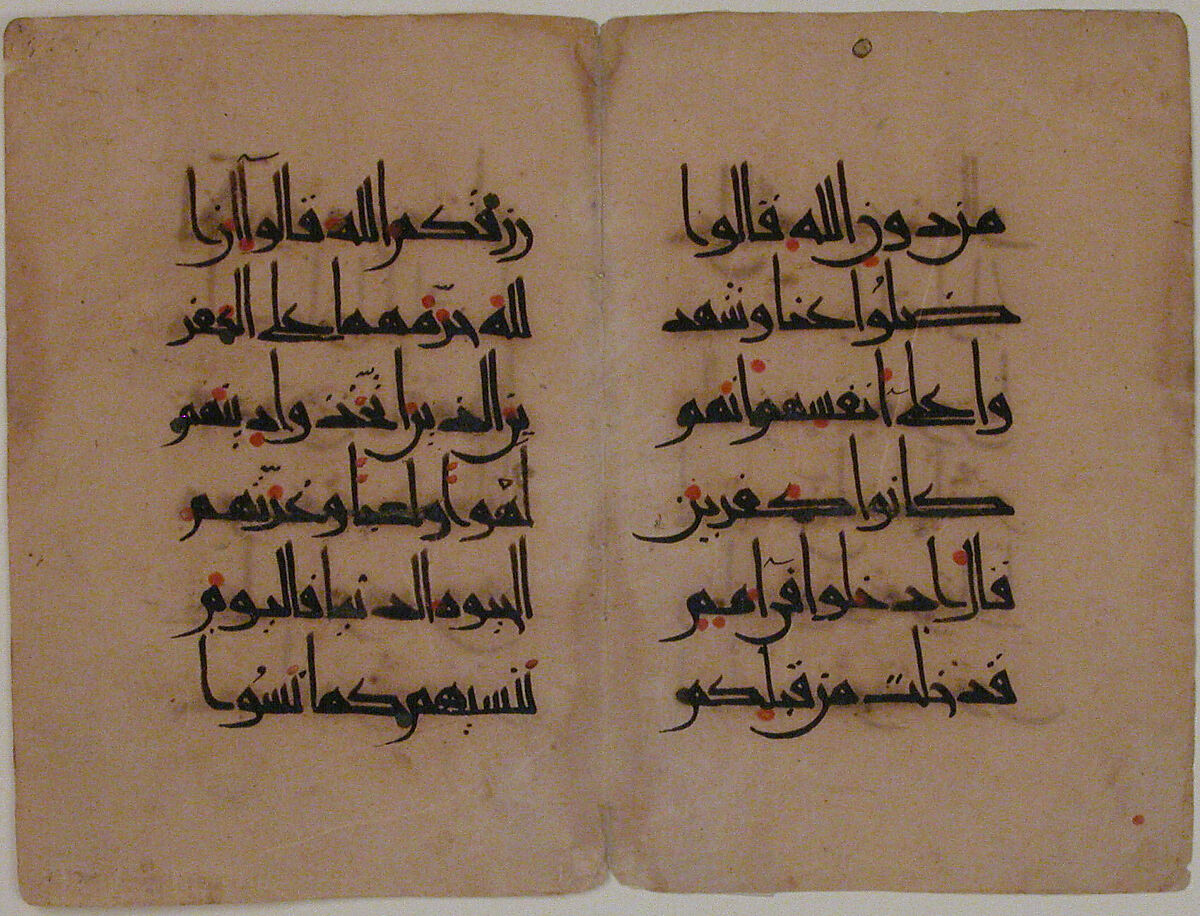 من دون الله قالوا
ضلوا عنا وشهد
وا على أنفسهم انهم
كانوا كفرين
قال ادخلوا في امم
قد خلت من قبلكم
رزقكم الله قالوآ ان ا
لله حرمهما على الكفر
ين الذين اتخذوا دينهم
لهوا ولعبا وغرتهم
الحيوة الدنيا فاليوم
ننسيهم كما نسوا